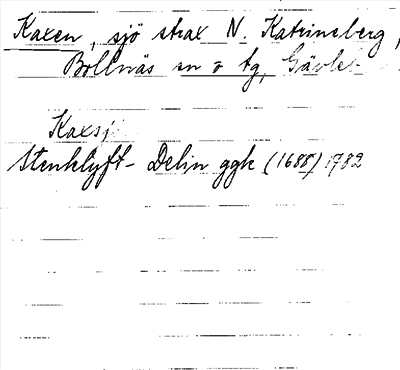 Kaxen, sjö strax N. Katrineberg,
Bollnäs sn o tg, Gävle
Kaxsj
Stenklyft- Delin ggk (1688) 1782